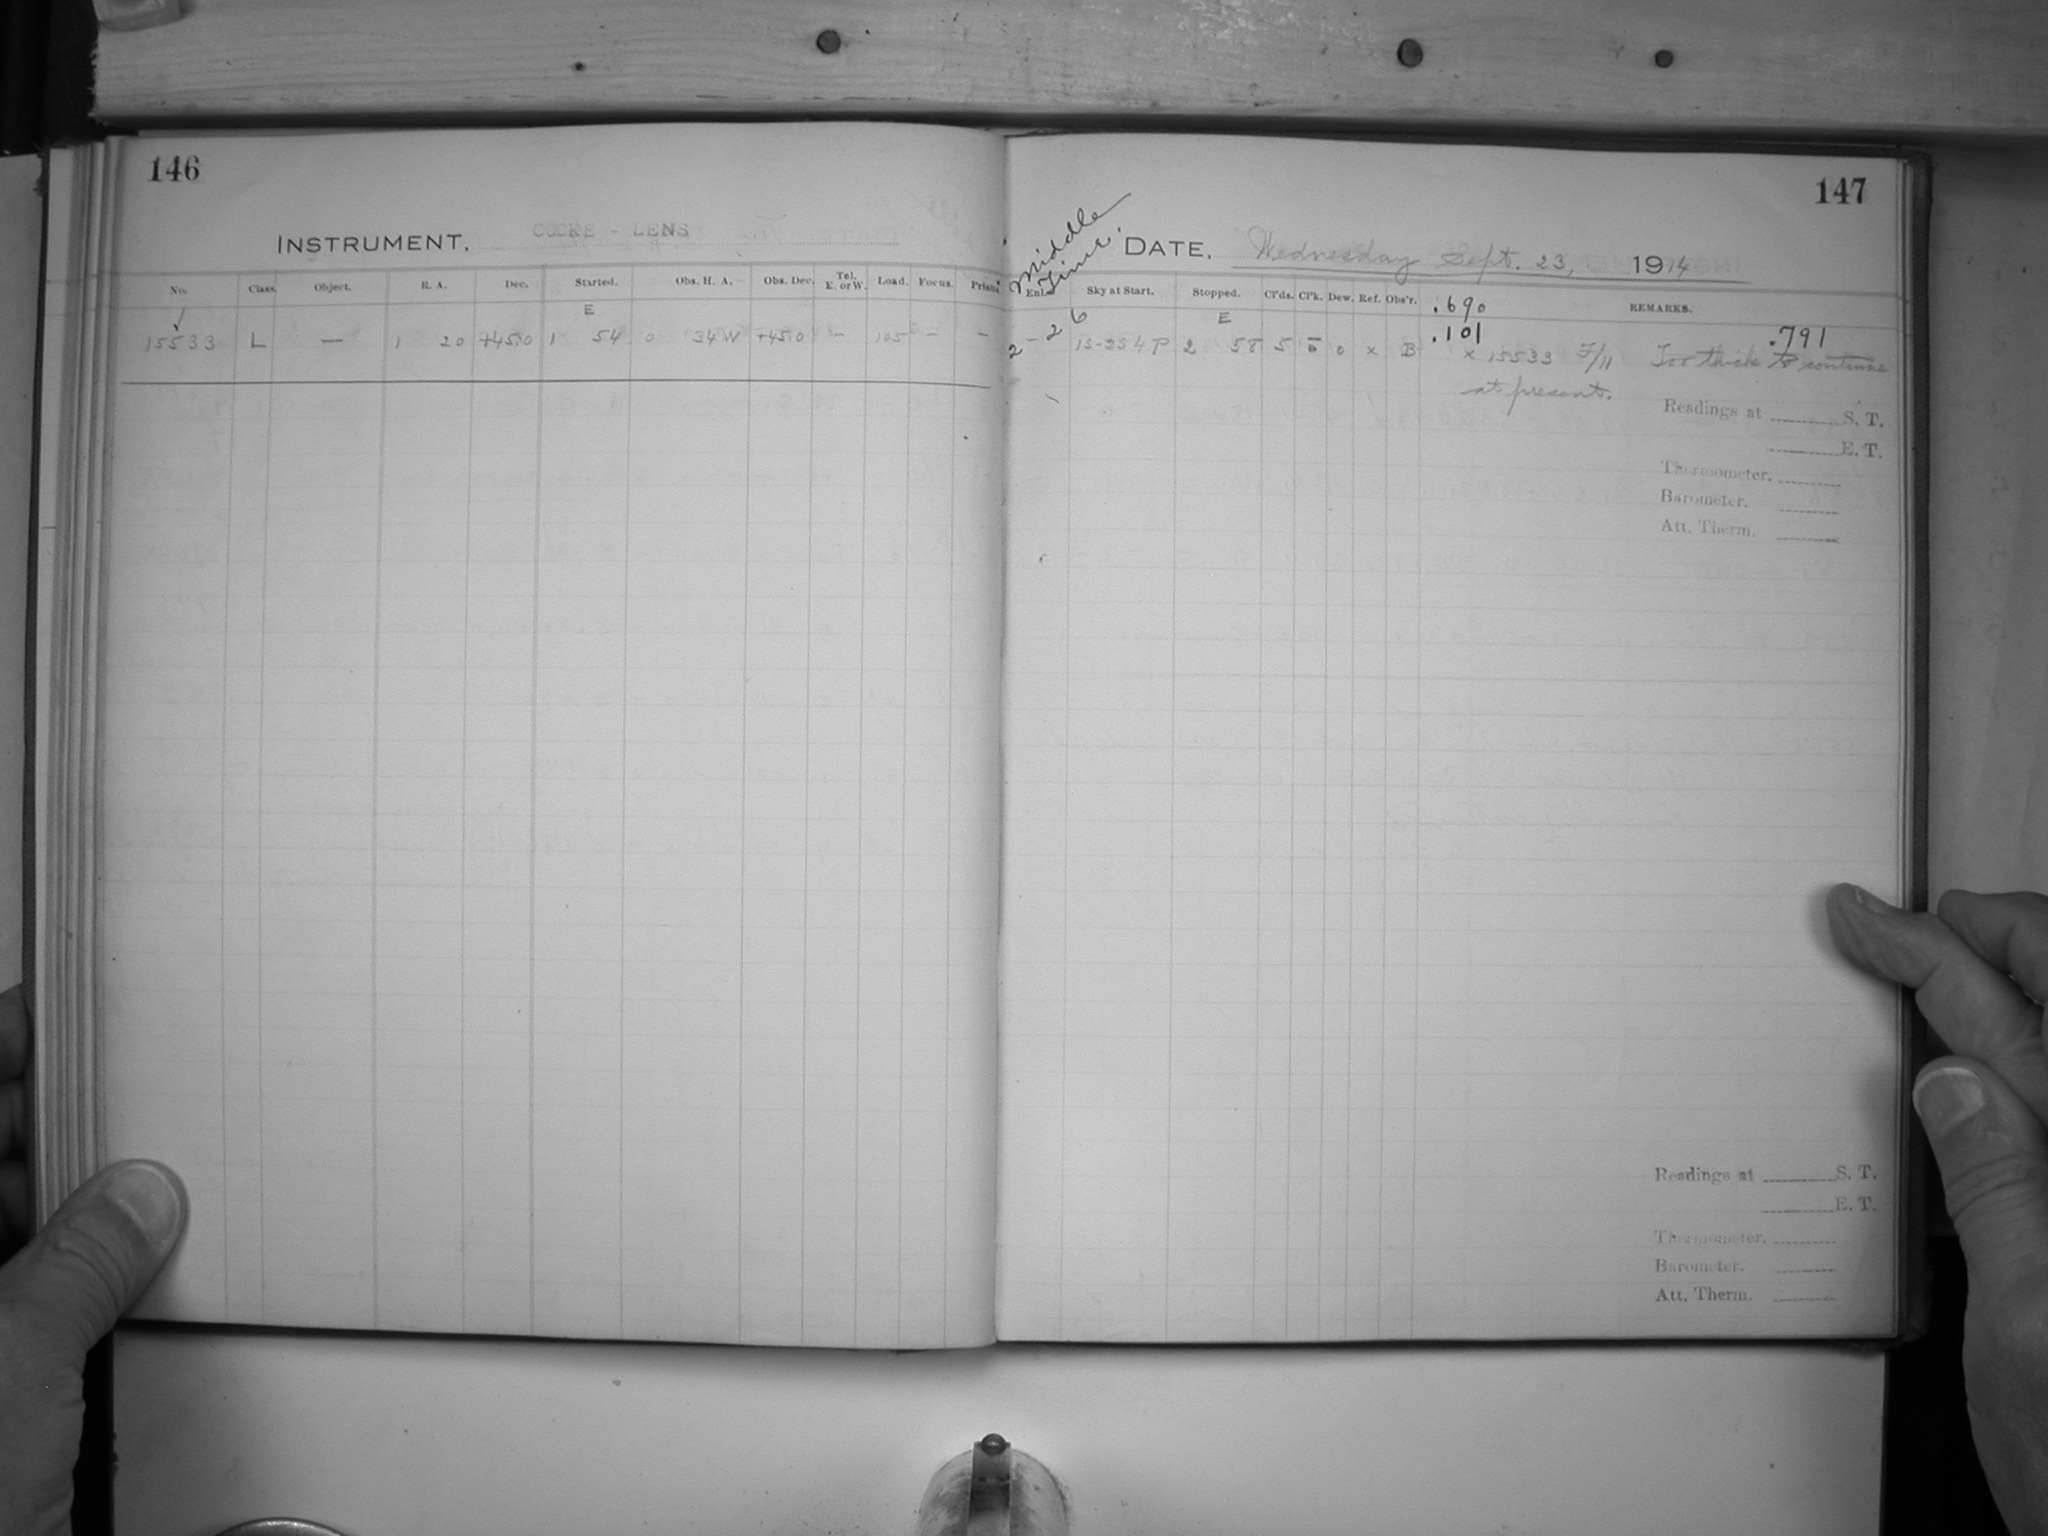 146
INSTRUMENT. COOKE - LENS
No. Class. Object. R. A. Dec. Started. Obs. H. A. Obs. Dec. Tel. E. or W. Load. Focus. Prism.
E
15533 L — 1 20 +45.0 1 54 0 34 W +45.0 - 105 - -
147
Middle
Time.
DATE. Wednesday Sept. 23, 1914
Enl. Sky at Start. Stopped. Cl'ds. Cl'k. Dew. Ref. Obs'r. REMARKS.
.690
E
2-26 2 58 5 0 0 x B .101 .791
x 15533 F/11 Too thick to continue
at present.
Readings at S. T.
E. T.
Thermometer.
Barometer.
Att. Therm.
Readings at S. T.
E. T.
Thermometer.
Barometer.
Att. Therm.